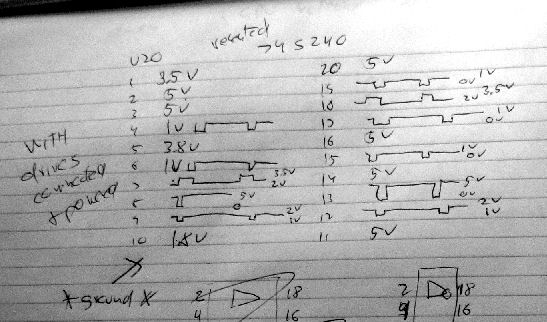 U20 reseated 74S240
1 3.5V 20 5V
2 5V 19 1V 0V
3 5V 18 3.5V 2V
4 1V 17 1V 0V
5 3.8V 16 5V
6 1V 15 1V 0V
7 3.5V 2V 14 5V
8 5V 0 13 5V 0V
9 2V 1V 12 2V 1V
10 1.8V 11 5V
WITH
drives
connected
+ powered
* ground *
2 18
4 16
2 18
4 16